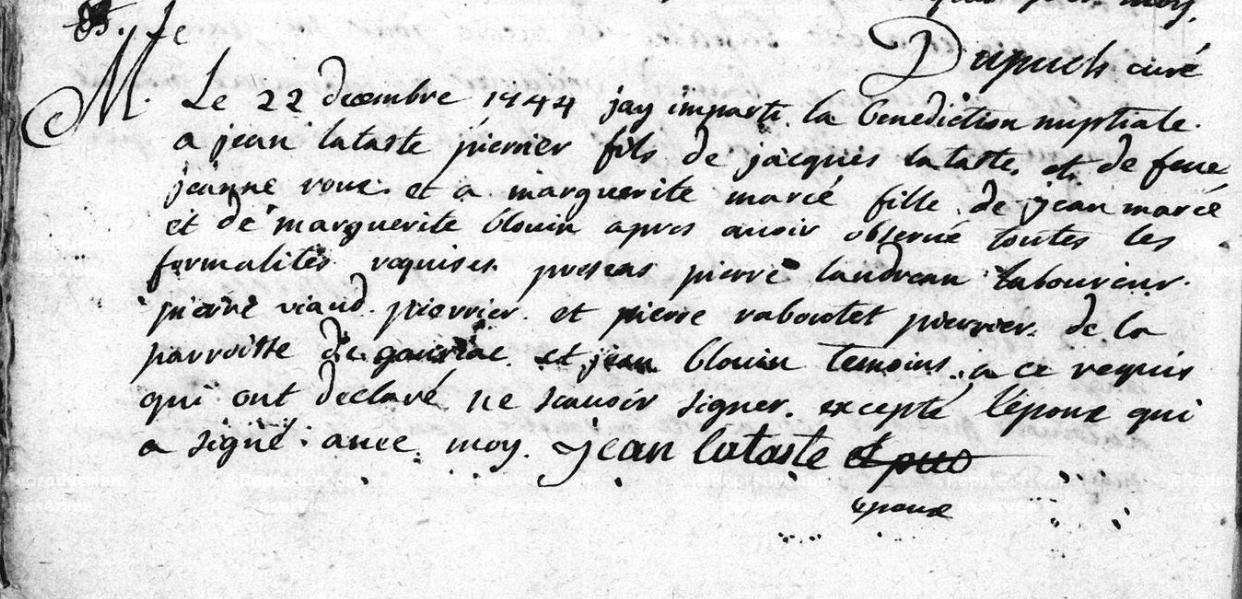 Dupuch curé
M. Le 22 decembre 1744 jay imparti la benediction nuptiale
a jean lataste pierrier fils de jacques lataste et de feue
jeanne roux et a marguerite marcé fille de jean marcé
et de marguerite blouin apres avoir observé toutes les
formalités requises presens pierre landreau laboureur
pierre viaud pierrier et pierre raboutet pierrier de la
parroisse de gauriac et jean blouin temoins a ce requis
qui ont declaré ne scavoir signer excepté l'epoux qui
a signé avec moy jean lataste
epoux